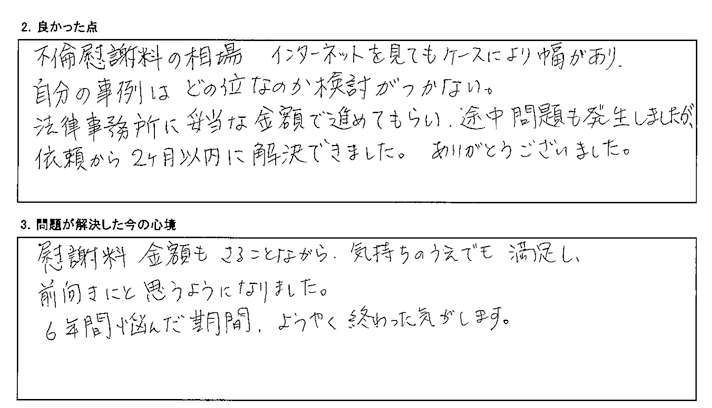 2. 良かった点
不倫慰謝料の相場　インターネットを見てもケースにより幅があり、
自分の事例は どの位なのか検討がつかない。
法律事務所に妥当な金額で進めてもらい、途中問題も発生しましたが、
依頼から2ヶ月以内に解決できました。　ありがとうございました。
3. 問題が解決した今の心境
慰謝料 金額も さることながら、気持ちのうえでも 満足し、
前向きにと思うようになりました。
6年間悩んだ期間、ようやく終わった気がします。